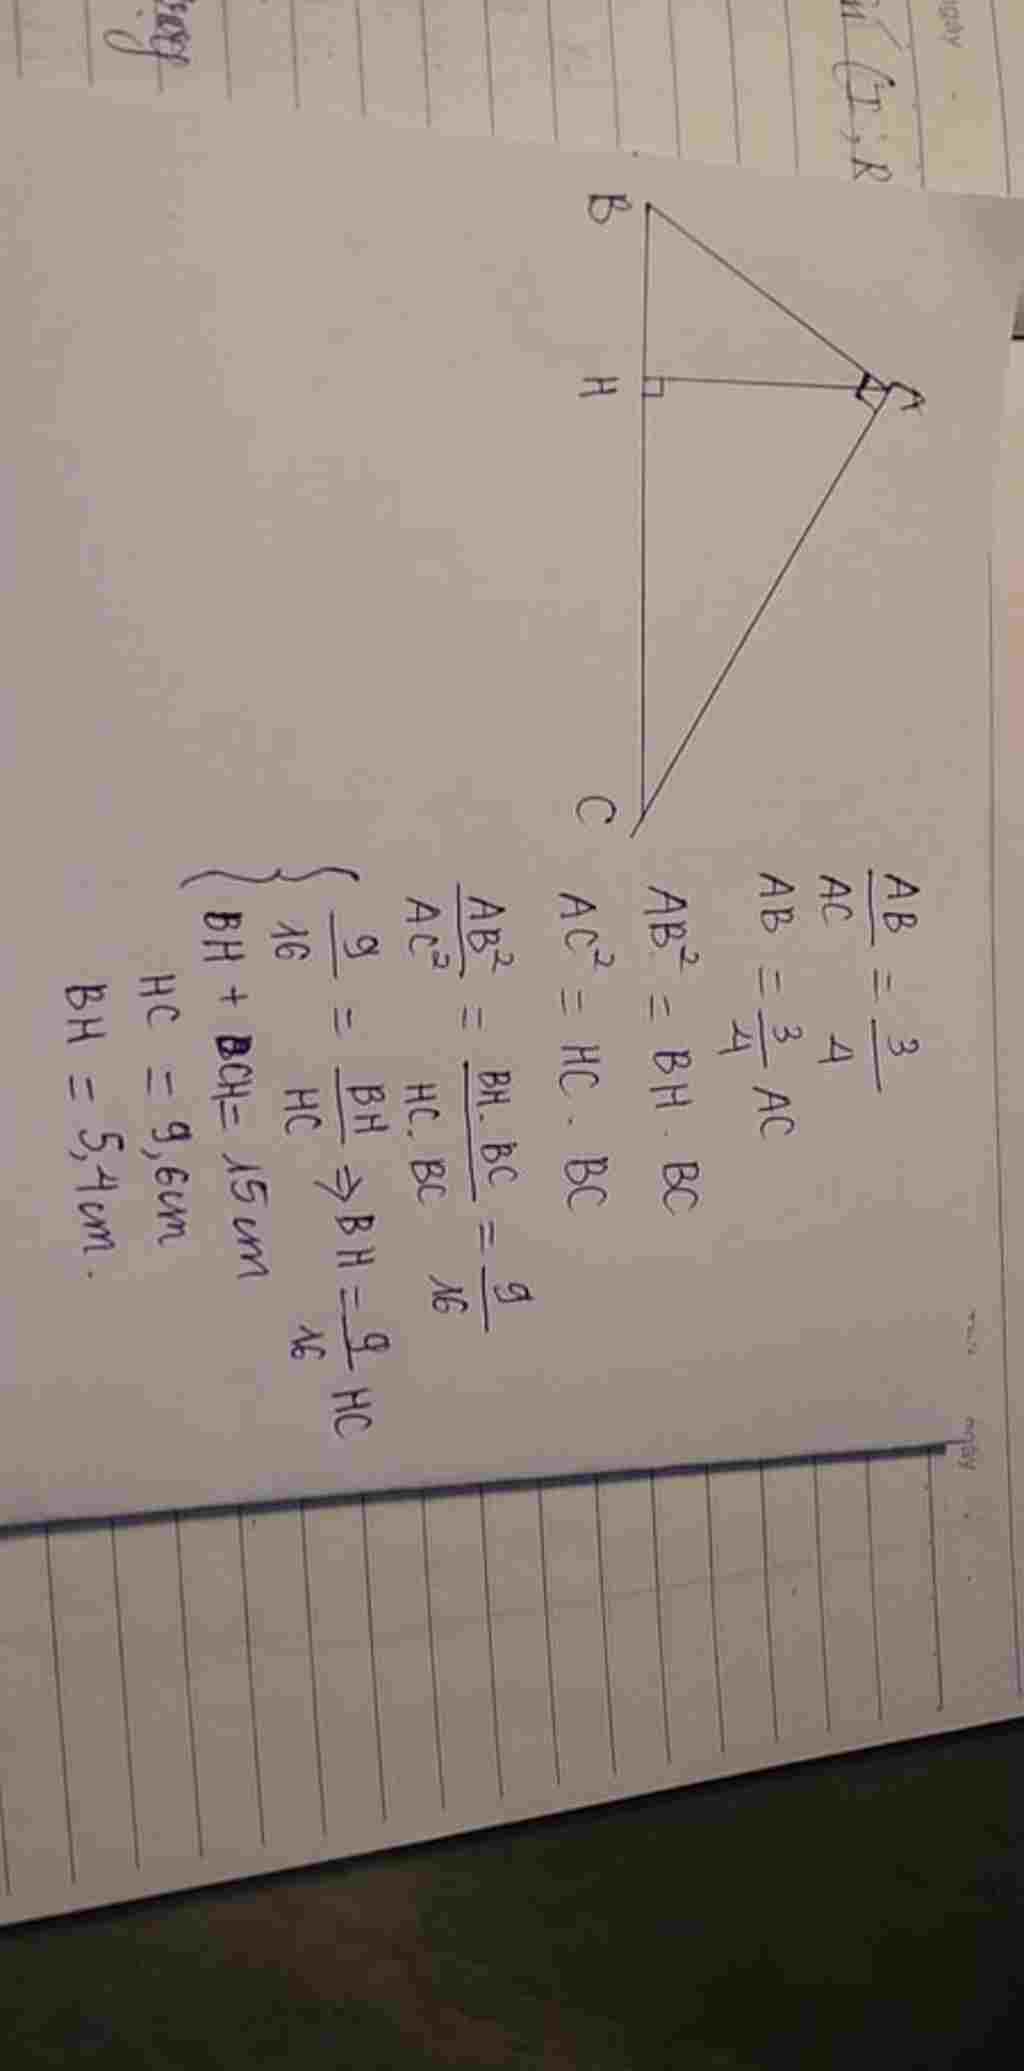 n (I; R
A
B
H
C
AB/AC = 3/4
AB = 3/4 AC
AB² = BH . BC
AC² = HC . BC
AB²/AC² = BH. BC/HC. BC = 9/16
{ 9/16 = BH/HC ⇒ BH = 9/16 HC
BH + BCH = 15 cm
HC = 9,6cm
BH = 5,4cm.